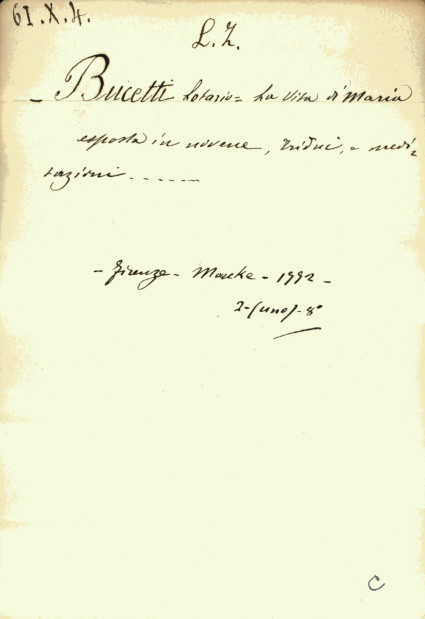 61.X.4.
L. Z.
- Bucetti Lotario = La vita di Maria
esposta in novene, tridui, e medi=
tazioni - - - - -
- Firenze - Moucke - 1772 -
2 - (uno) - 8°
C